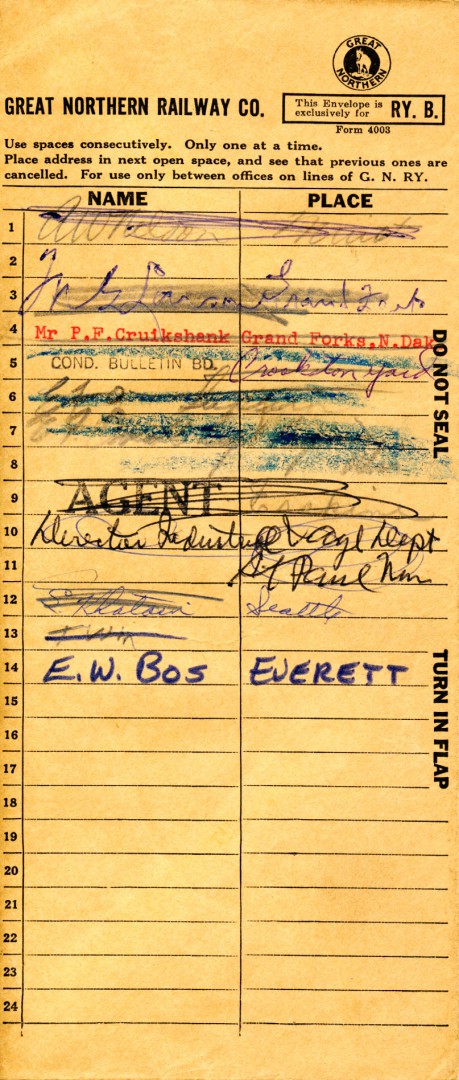 GREAT NORTHERN
GREAT NORTHERN RAILWAY CO.
This Envelope is exclusively for RY. B.
Form 4003
Use spaces consecutively. Only one at a time.
Place address in next open space, and see that previous ones are
cancelled. For use only between offices on lines of G. N. RY.
NAME PLACE
1
2
3 Grand Forks
4 Mr P.F.Cruikshank Grand Forks,N.Dak
5 COND. BULLETIN BD. Crookston Yard
6
7
8
9 AGENT
10 Director Industrial & Agl Dept
11 St Paul Minn
12 Seattle
13
14 E.W. BOS EVERETT
15
16
17
18
19
20
21
22
23
24
DO NOT SEAL
TURN IN FLAP